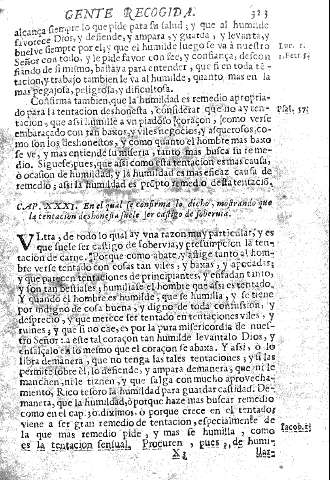 GENTE RECOGIDA. 323
alcança siempre lo que pide para su salud; y que al humilde
favorece Dios, y defiende, y ampara, y guarda, y levanta, y
buelve siempre por el; y que el humilde luego se va à nuestro
Señor con todo, y le pide favor con fee, y confiança, descon
fiando de si mismo, bastava para entender, que si en toda tẽ-
tacion, y trabajo tambien le va al humilde, quanto mas en la
mas pegajosa, peligrosa, y dificultosa.
Confirma tambien, que la humildad es remedio apropria-
do para la tentacion deshonesta, considerar que no ay ten-
tacion, que assi humille à vn piadoso coraçon, como verse
embaraçado con tan baxos, y viles negocios, y asquerosos, co-
mo son los deshonestos, y como quanto el hombre mas baxo
se ve, y mas entiende su miseria, tanto mas busca su reme-
dio. Siguese, pues, que assi como esta tentacion es mas causa,
ò ocasion de humildad, y la humildad es mas eficaz causa de
remedio; assi la humildad es proprio remedio desta tẽtaciõ.
CAP. XXXI. En el qual se confirma lo dicho, mostrando que
la tentacion deshonesta suele ser castigo de sobervia.
VLtra, de todo lo qual ay vna razon muy particular, y es
que suele ser castigo de sobervia, y presumpcion la ten-
tacion de carne. Porque como abate, y aflige tanto al hom-
bre verse tentado con cosas tan viles, y baxas, y apocadas,
y que parecen tentaciones de principiantes, y enfadan tanto,
y son tan bestiales; humillase el hombre que assi es tentado.
Y quando el hombre es humilde, que se humilla, y se tiene
por indigno de cosa buena, y digno de toda confusion, y
desprecio, y que merece ser tentado en tentaciones viles, y
ruines; y que si no cae, es por la pura misericordia de nues-
tro Señor: à este tal coraçon tan humilde levantalo Dios, y
ensalçalo en lo mesmo que el coraçon se abaxa. Y assi, ò lo
libra de manera, que no tenga las tales tentaciones; y si las
permite sobre èl, lo defiende, y ampara de manera, que ni le
manchen, ni le tiznen, y que salga con mucho aprovecha-
miento, Rico tesoro la humildad para guardar castidad. De
manera, que la humildad, ò porque haze mas buscar remedio
como en el cap. 30. diximos, ò porque crece en el tentado
viene à ser gran remedio de tentacion, especialmente de
la que mas remedio pide, y mas se humilla, como
es la tentacion sensual. Procuren, pues, de humi-
X 2 llar-
Luc. 1.
1. Petr. 5.
Psal. 37.
Jacob. 4.